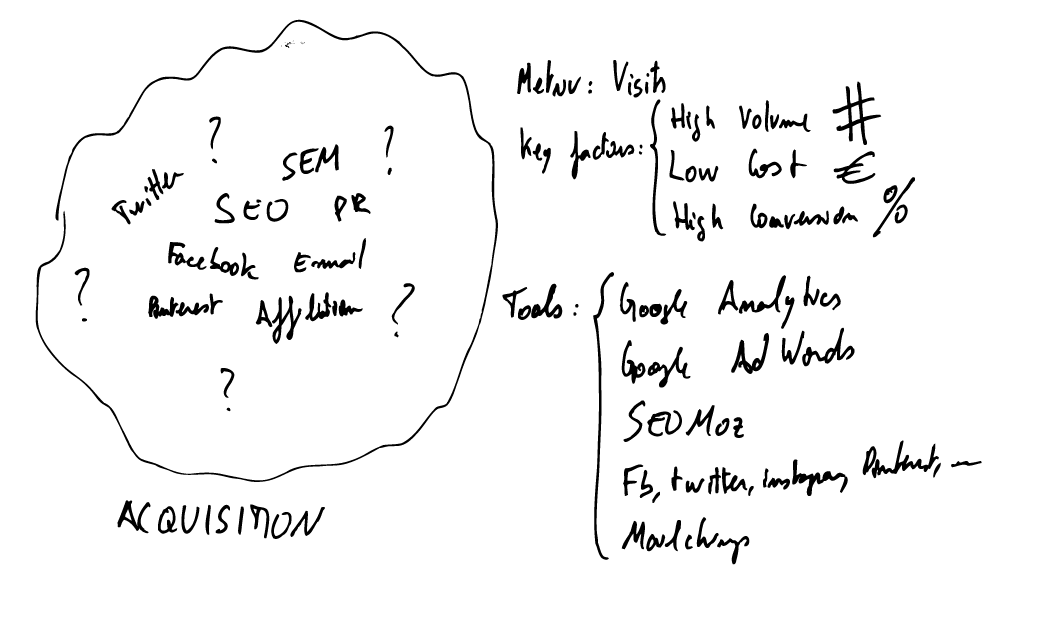 ? ?
SEM
Twitter
SEO PR
Facebook Email
? Pinterest Affiliation ?
?
ACQUISITION
Metric: Visits
Key factors:
High Volume #
Low Cost €
High Conversion %
Tools:
Google Analytics
Google AdWords
SEOMoz
Fb, twitter, instagram, Pinterest, ...
Mailchimp